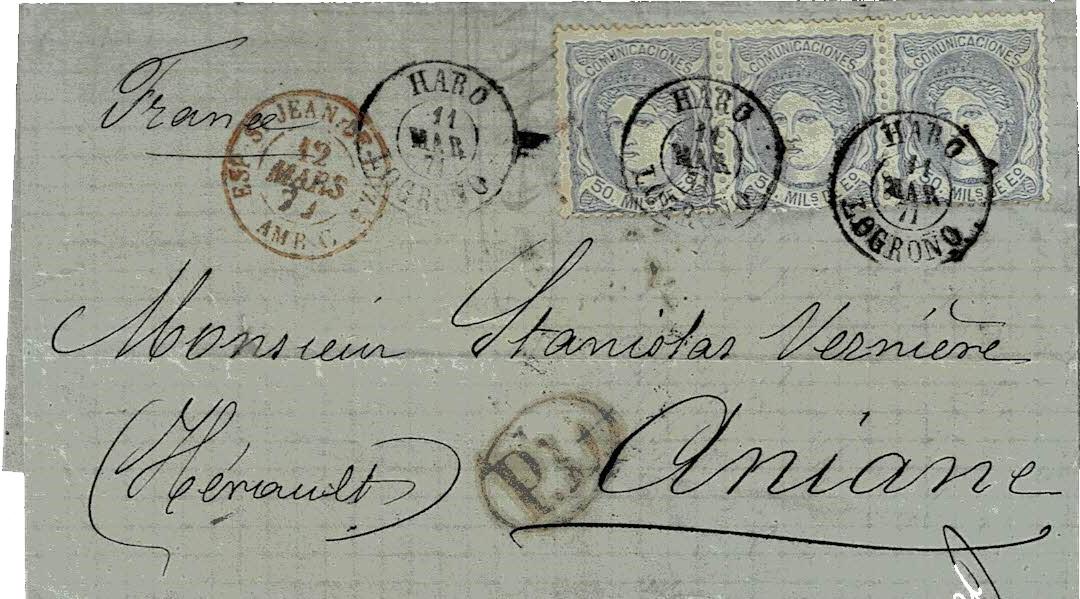 France
ESP. ST JEAN-DE-LUZ
12
MARS
71
AMB. C.
HARO
11
MAR
71
LOGROÑO
COMUNICACIONES
50. MILS DE Eº
COMUNICACIONES
COMUNICACIONES
50. MILS DE Eº
HARO
11
MAR
LOGROÑO
HARO
11
MAR
71
LOGROÑO
Monsieur Stanislas Vernière
(Hérault) Aniane
P.D.